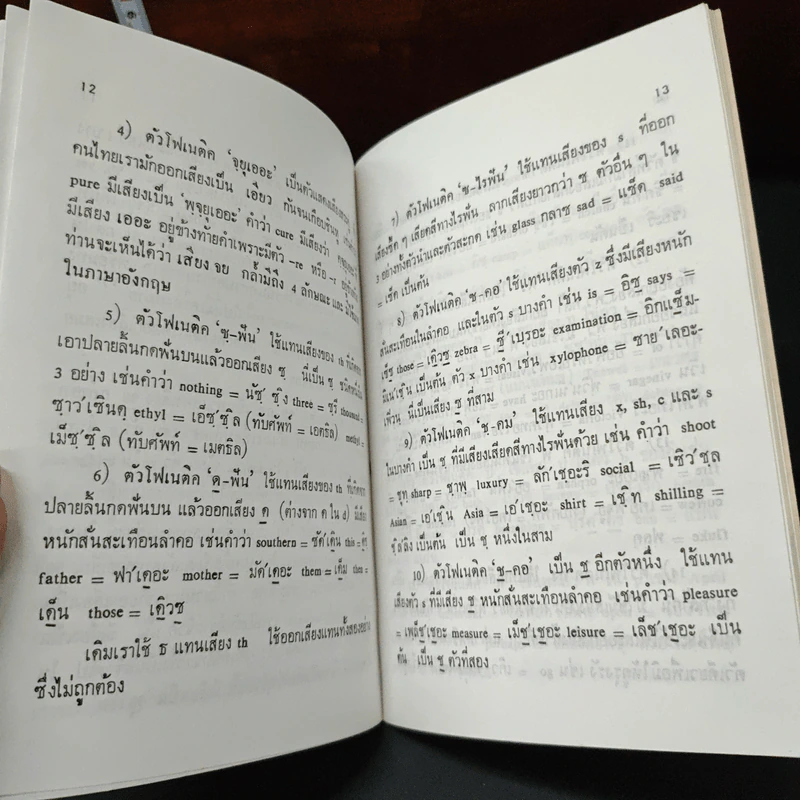 12
4) ตัวโฟเนติค 'จฺยุเออะ' เป็นตัวแสดงเสียง
คนไทยเรามักออกเสียงเป็น เอี๋ยว กันจนเกือบชินหู
pure มีเสียงเป็น 'พฺจฺยุเออะ' คำว่า cure มีเสียงว่า
มีเสียง เออะ อยู่ข้างท้ายคำเพราะมีตัว -re หรือ -r อยู่ข้างท้าย
ท่านจะเห็นได้ว่า เสียง จย กล้ำมีถึง 4 ลักษณะ และ
ในภาษาอังกฤษ
5) ตัวโฟเนติค 'ซฺ-ฟัน' ใช้แทนเสียงของ th ที่เกิดจาก
เอาปลายลิ้นกดฟันบนแล้วออกเสียง ซฺ นี่เป็น ซฺ ชนิดหนึ่งใน
3 อย่าง เช่นคำว่า nothing = นัซฺ'ซฺิง three = ซฺรี thousand =
ซฺาว'เซินดฺ ethyl = เอ็ซฺ'ซฺิล (ทับศัพท์ = เอตธิล) methyl =
เม็ซฺ'ซฺิล (ทับศัพท์ = เมตธิล)
6) ตัวโฟเนติค 'ดฺ-ฟัน' ใช้แทนเสียงของ th ที่เกิดจาก
ปลายลิ้นกดฟันบน แล้วออกเสียง ดฺ (ต่างจาก ด ใน d) มีเสียง
หนักสั่นสะเทือนลำคอ เช่นคำว่า southern = ซัด'เดิน this =
father = ฟา'เดอะ mother = มัด'เดอะ them = เด็ม then =
เด็น those = เดิวซฺ
เดิมเราใช้ ธ แทนเสียง th ใช้ออกเสียงแทนทั้งสองอย่าง
ซึ่งไม่ถูกต้อง
13
7) ตัวโฟเนติค 'ซ-ไรฟัน' ใช้แทนเสียงของ s ที่ออก
เสียงซี้ด ๆ เสียดสีทางไรฟัน ลากเสียงยาวกว่า ซ ตัวอื่น ๆ ใน
3 อย่างทั้งตัวนำและตัวสะกด เช่น glass กลาซ sad = แซ็ด said
= เซ็ด เป็นต้น
8) ตัวโฟเนติค 'ซ-คอ' ใช้แทนเสียงตัว z ซึ่งมีเสียงหนัก
สั่นสะเทือนในลำคอ และในตัว s บางคำ เช่น is = อิซฺ says =
เซ็ซฺ those = เดิวซฺ zebra = ซี'เบฺรอะ examination = อิกแซ็ม-
มิเน'เชิน เป็นต้น ตัว x บางคำ เช่น xylophone = ซาย'เลอะ-
เฟิวน นี่เป็นเสียง ซ ที่สาม
9) ตัวโฟเนติค 'ชฺ-คม' ใช้แทนเสียง x, sh, c และ s
ในบางคำ เป็น ชฺ ที่มีเสียงเสียดสีทางไรฟันด้วย เช่น คำว่า shoot
= ชฺูท sharp = ชฺาพฺ luxury = ลัก'เชฺอะริ social = เซิว'ชฺล
Asian = เอ'เชฺิน Asia = เอ'เชฺอะ shirt = เชฺิท shilling =
ชฺิล'ลิง เป็นต้น เป็น ชฺ หนึ่งในสาม
10) ตัวโฟเนติค 'ช-คอ' เป็น ช อีกตัวหนึ่ง ใช้แทน
เสียงตัว s ที่มีเสียง ช หนักสั่นสะเทือนลำคอ เช่นคำว่า pleasure
= เพฺล็ช'เชอะ measure = เม็ช'เชอะ leisure = เล็ช'เชอะ เป็น
ต้น เป็น ช ตัวที่สอง